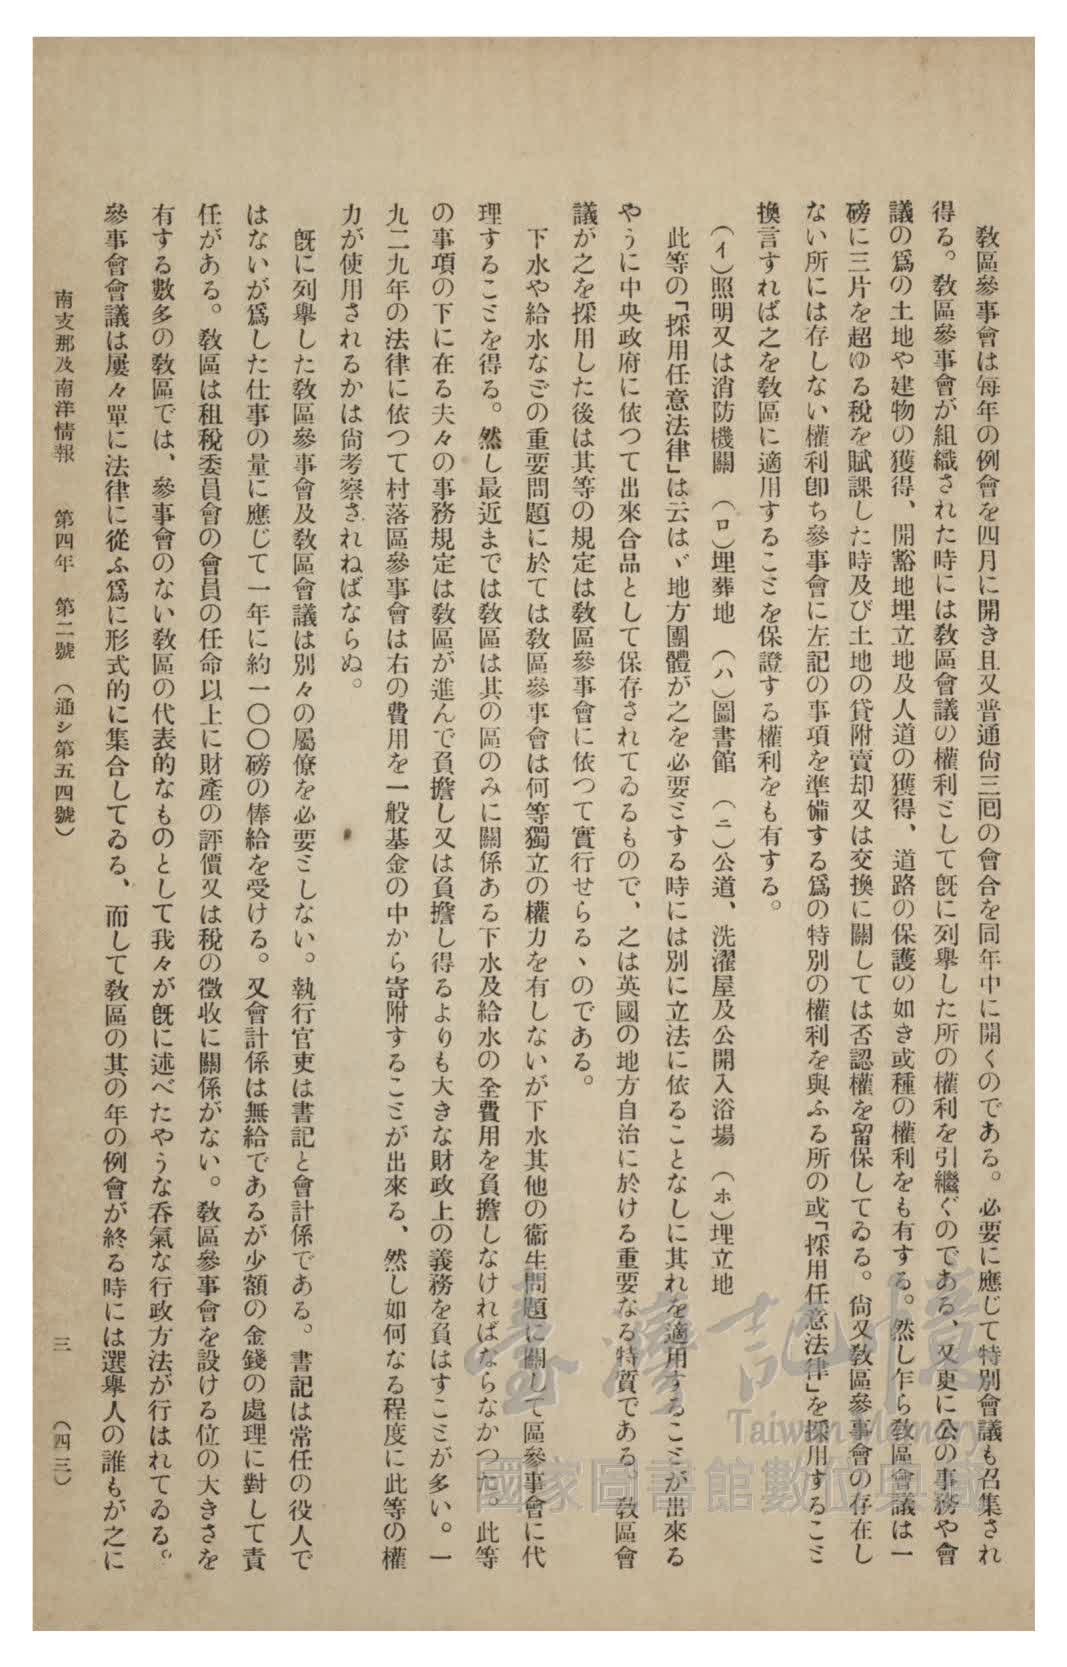 敎區參事會は每年の例會を四月に開き且又普通尙三囘の會合を同年中に開くのである。必要に應じて特別會議も召集され
得る。敎區參事會が組織された時には敎區會議の權利ミして旣に列擧した所の權利を引繼ぐのである、又更に公の事務や會
議の爲の土地や建物の獲得、開豁地埋立地及人道の獲得、道路の保護の如き或種の權利をも有する。然し乍ら敎區會議は一
磅に三片を超ゆる稅を賦課した時及び土地の貸附賣却又は交換に關しては否認權を留保してゐる。尙又敎區參事會の存在し
ない所には存しない權利卽ち參事會に左記の事項を準備する爲の特別の權利を與ふる所の或「採用任意法律」を採用するこミ
換言すれば之を敎區に適用するこミを保證する權利をも有する。
（イ）照明又は消防機關　（ロ）埋葬地　（ハ）圖書館　（ニ）公道、洗濯屋及公開入浴場　（ホ）埋立地
此等の「採用任意法律」は云はゞ地方團體が之を必要ミする時には別に立法に依ることなしに其れを適用するこミが出來る
やうに中央政府に依つて出來合品として保存されてゐるもので、之は英國の地方自治に於ける重要なる特質である。敎區會
議が之を採用した後は其等の規定は敎區參事會に依つて實行せらるゝのである。
下水や給水なごの重要問題に於ては敎區參事會は何等獨立の權力を有しないが下水其他の衞生問題に關して區參事會に代
理するこミを得る。然し最近までは敎區は其の區のみに關係ある下水及給水の全費用を負擔しなければならなかつた。此等
の事項の下に在る夫々の事務規定は敎區が進んで負擔し又は負擔し得るよりも大きな財政上の義務を負はすこミが多い。一
九二九年の法律に依つて村落區參事會は右の費用を一般基金の中から寄附するこミが出來る、然し如何なる程度に此等の權
力が使用されるかは尙考察されねばならぬ。
旣に列擧した敎區參事會及敎區會議は別々の屬僚を必要ミしない。執行官吏は書記と會計係である。書記は常任の役人で
はないが爲した仕事の量に應じて一年に約一〇〇磅の俸給を受ける。又會計係は無給であるが少額の金錢の處理に對して責
任がある。敎區は租稅委員會の會員の任命以上に財產の評價又は稅の徵收に關係がない。敎區參事會を設ける位の大きさを
有する數多の敎區では、參事會のない敎區の代表的なものとして我々が旣に述べたやうな呑氣な行政方法が行はれてゐる。
參事會會議は屢々單に法律に從ふ爲に形式的に集合してゐる、而して敎區の其の年の例會が終る時には選擧人の誰もが之に
南支那及南洋情報　第四年　第二號　（通シ第五四號）　三　（四三）
臺灣記憶
Taiwan Memory
國家圖書館數位典藏